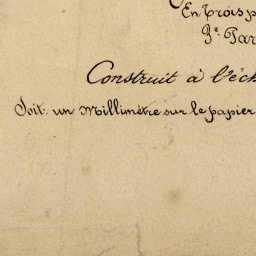 En trois p
3e. Par
Construit à l'éch
Soit: un Millimètre sur le papier